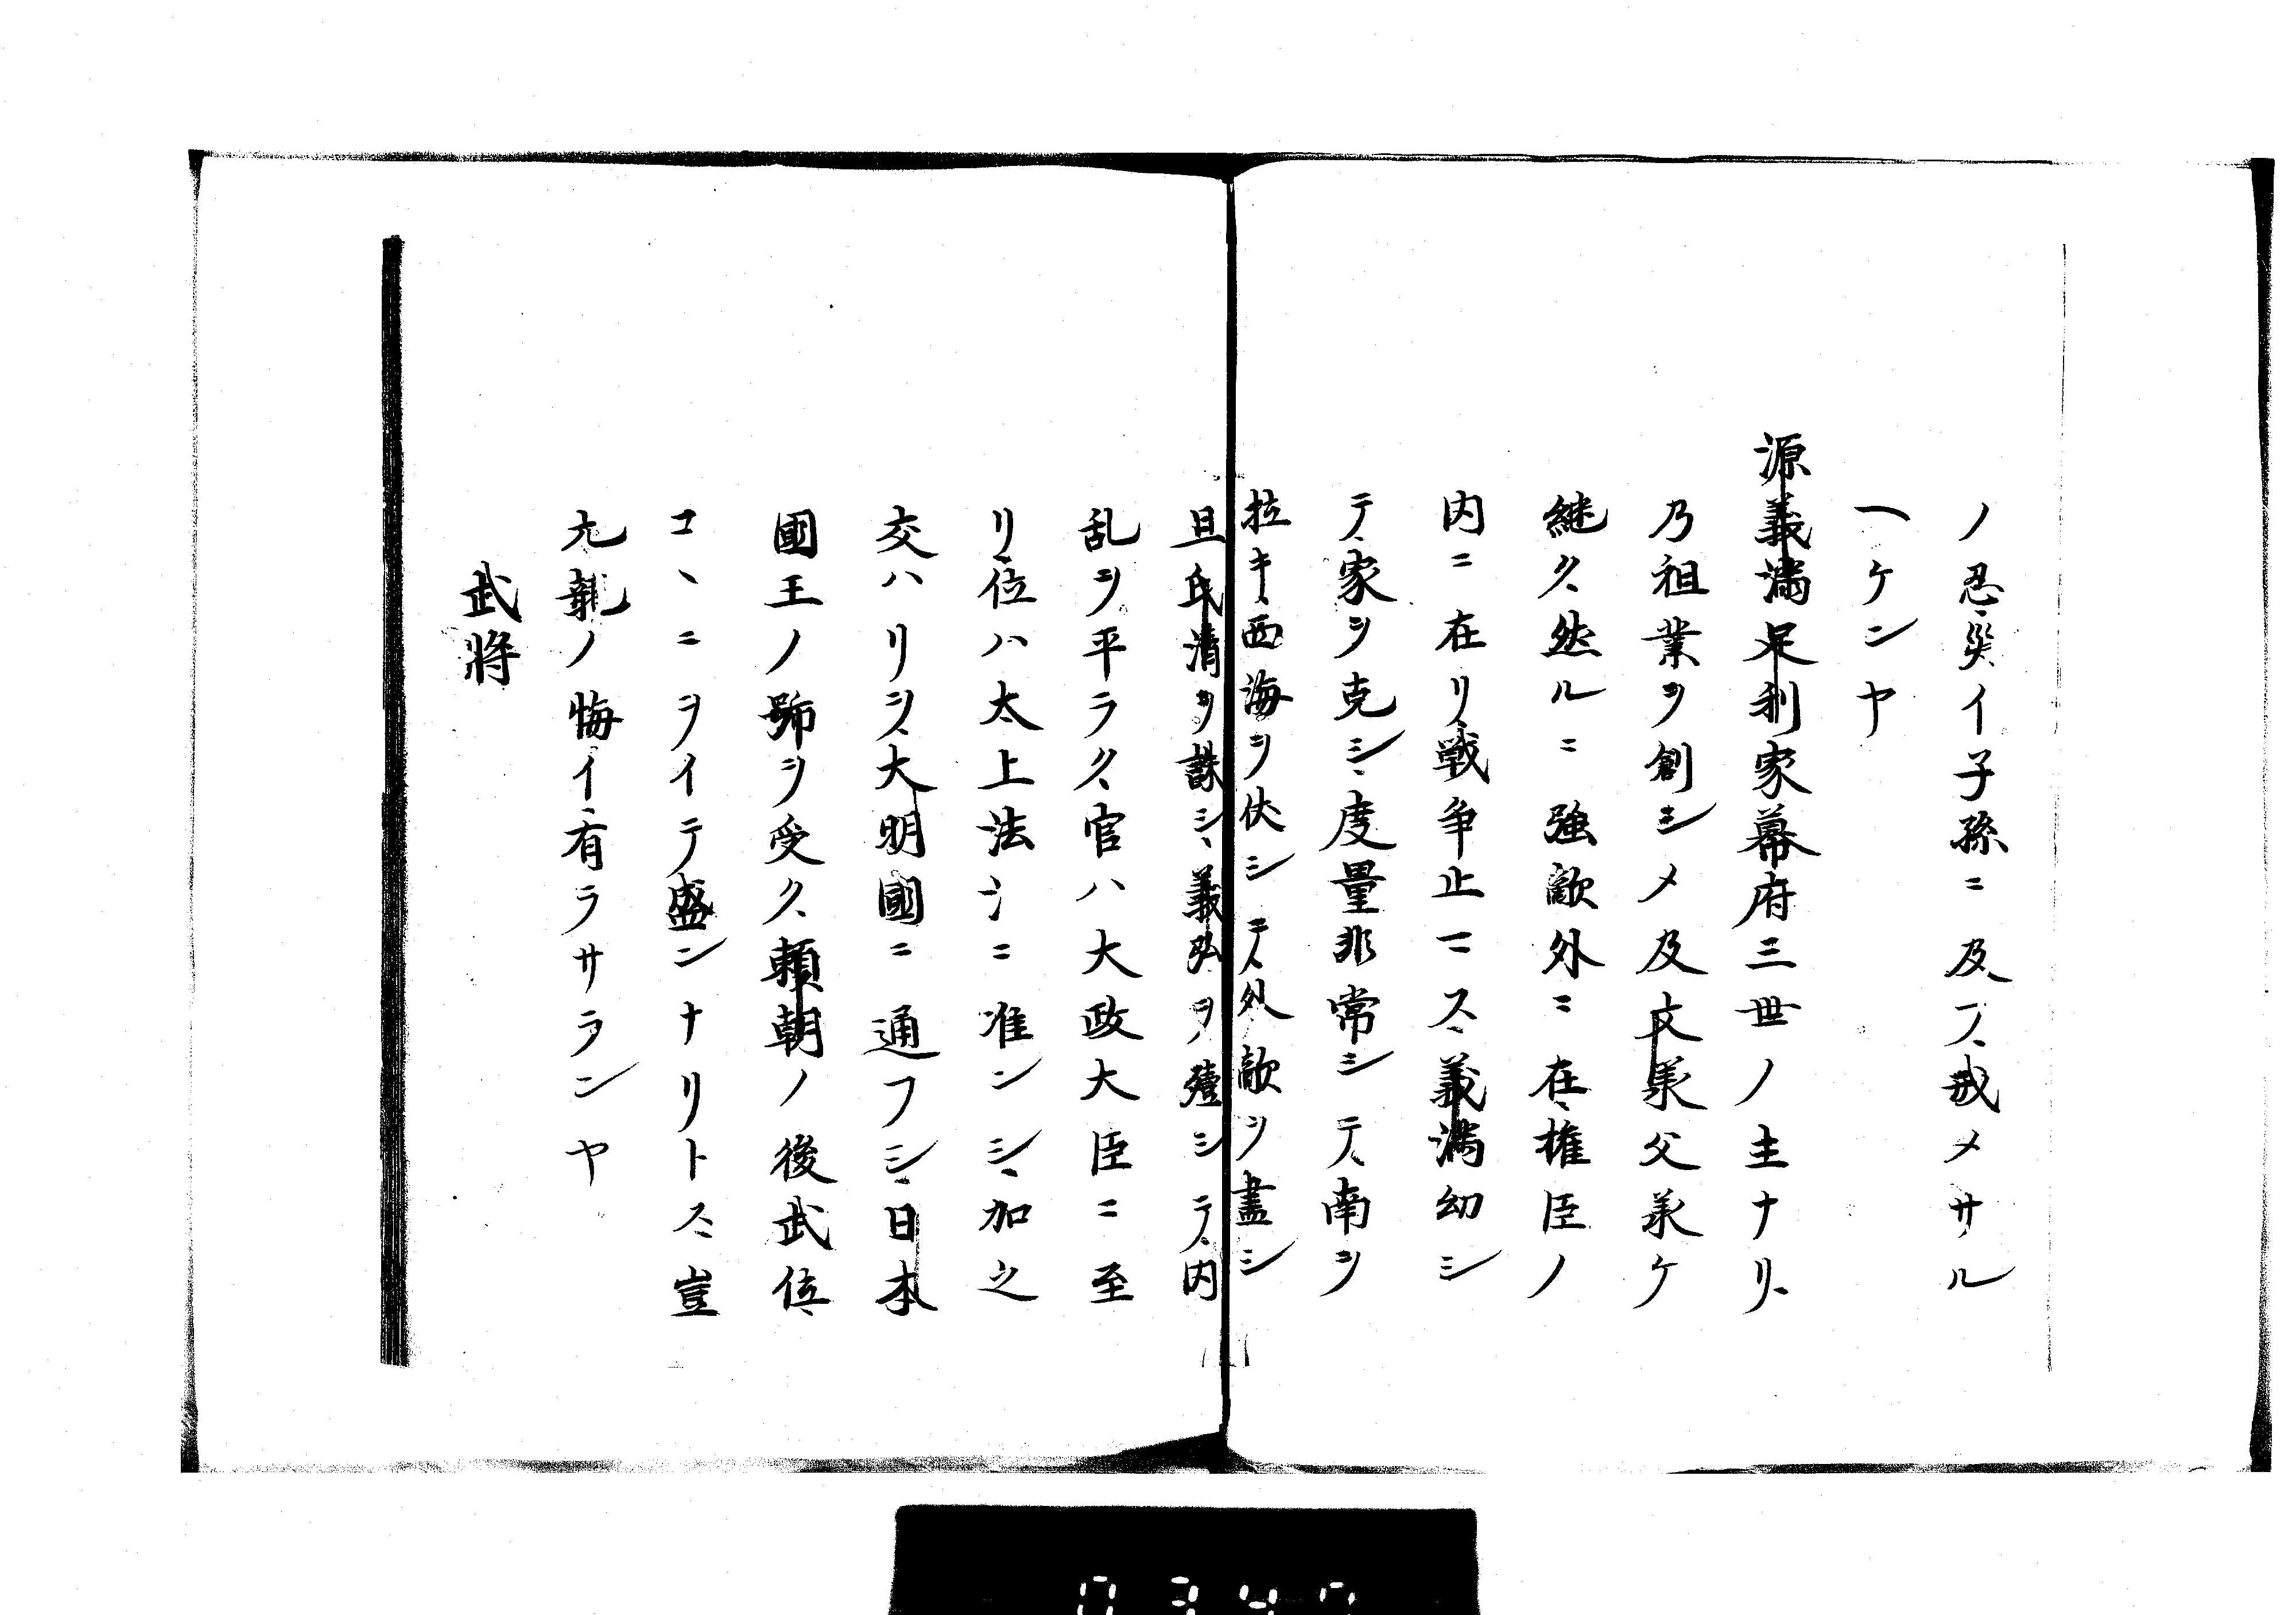 ノ忍災イ子孫ニ及フ戒メサル
ヘケンヤ
源義満足利家幕府三世ノ主ナリ
乃祖業ヲ創シメ及文義父義ケ
継ク然ルニ強敵外ニ在権臣ノ
内ニ在リ戦争止マス義満幼シ
テ家ヲ克シ度量非常シテ南ヲ
拉キ西海ヲ伏シテ外敵ヲ盡シ
且氏清ヲ誅シ義弘ヲ殪シテ内
乱ヲ平ラク官ハ大政大臣ニ至
リ位ハ太上法ニ准ンシ加之
交ハリヲ大明國ニ通フシ日本
國王ノ號ヲ受ク頼朝ノ後武位
コヽニヲイテ盛ンナリトス豈
亢龍ノ悔イ有ラサランヤ
武將